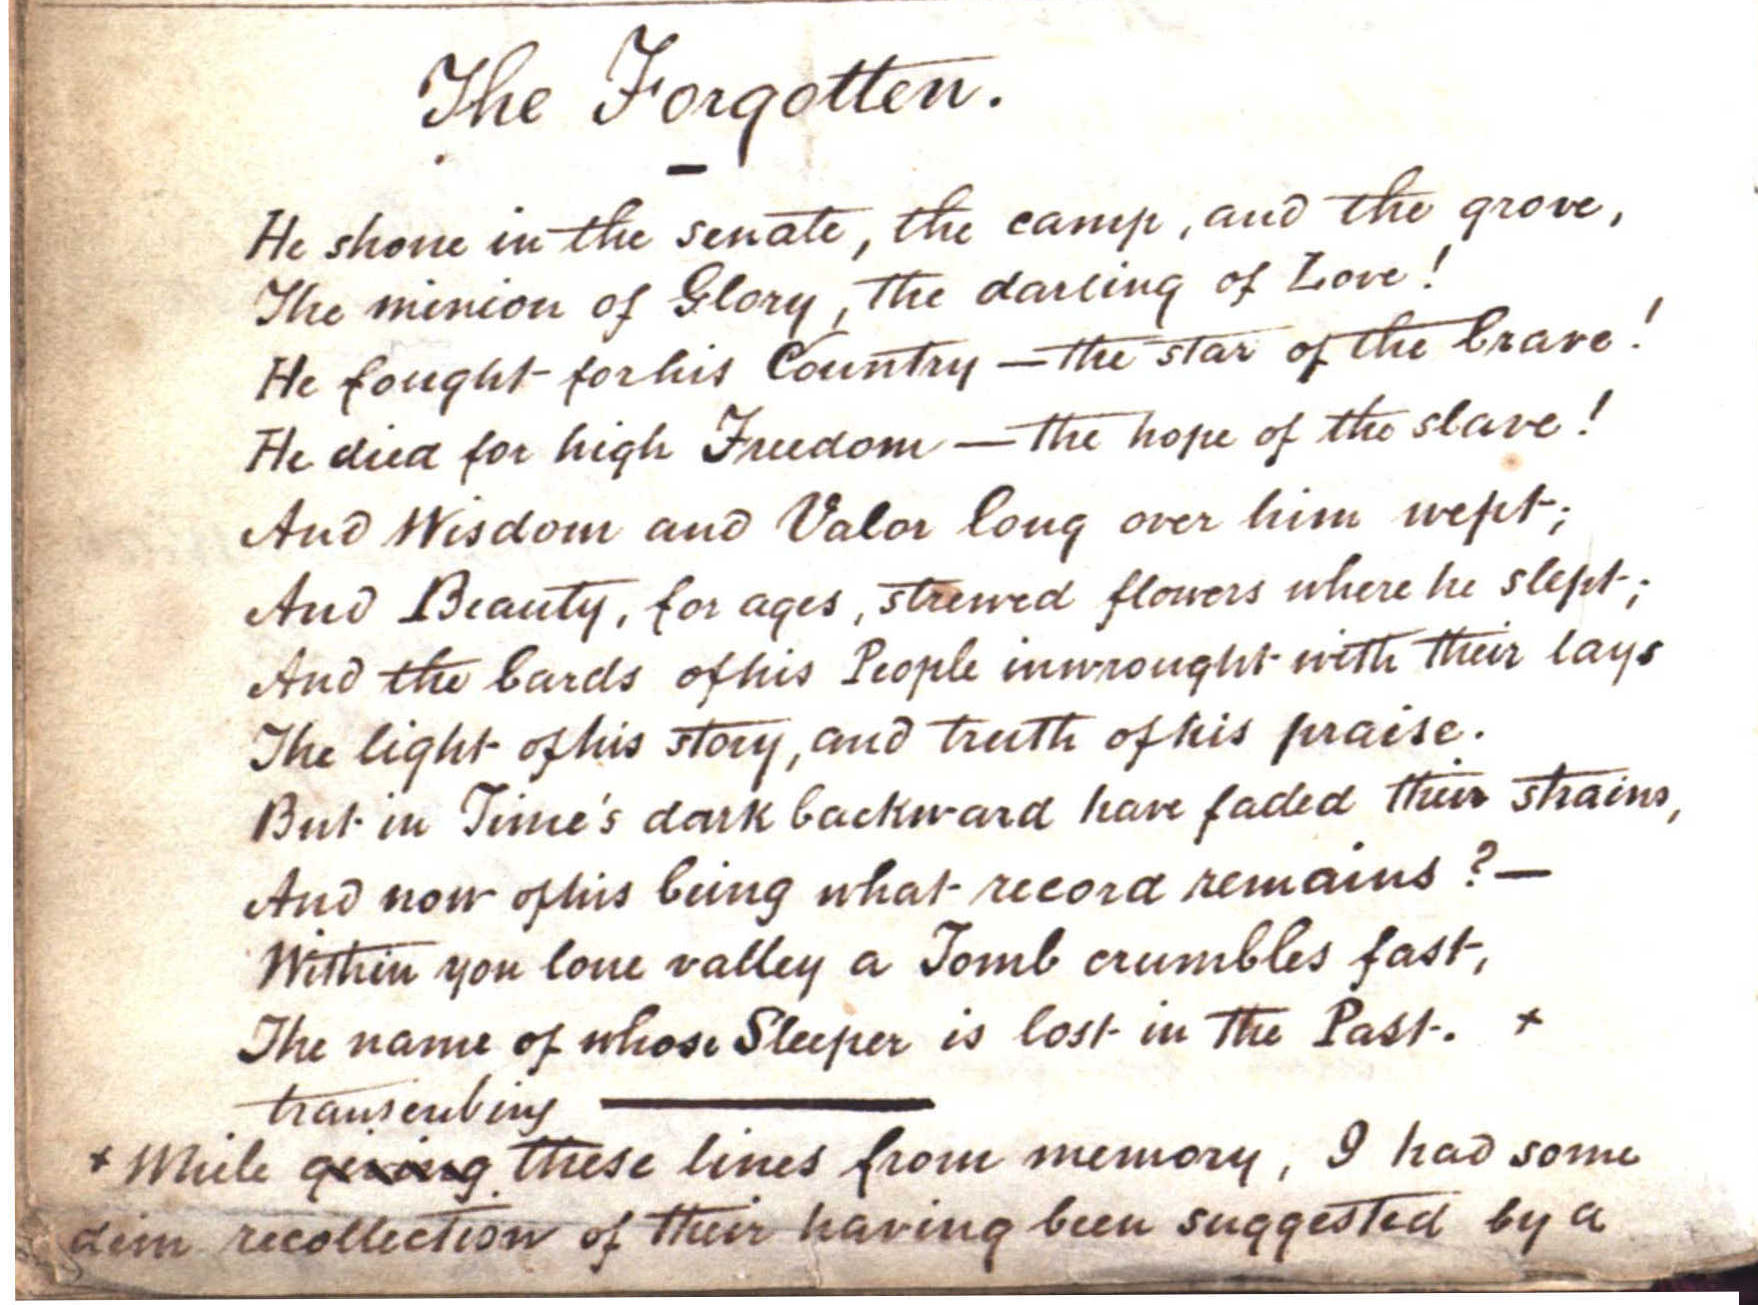 The Forgotten.
He shone in the senate, the camp, and the grove,
The minion of Glory, the darling of Love!
He fought for his Country — the star of the brave!
He died for high Freedom — the hope of the slave!
And Wisdom and Valor long over him wept;
And Beauty, for ages, strewed flowers where he slept;
And the bards of his People inwrought with their lays
The light of his story, and truth of his praise.
But in Time's dark backward have faded their strains,
And now of his being what record remains? —
Within yon lone valley a Tomb crumbles fast,
The name of whose Sleeper is lost in the Past. +
transcribing
+ While giving these lines from memory, I had some
dim recollection of their having been suggested by a